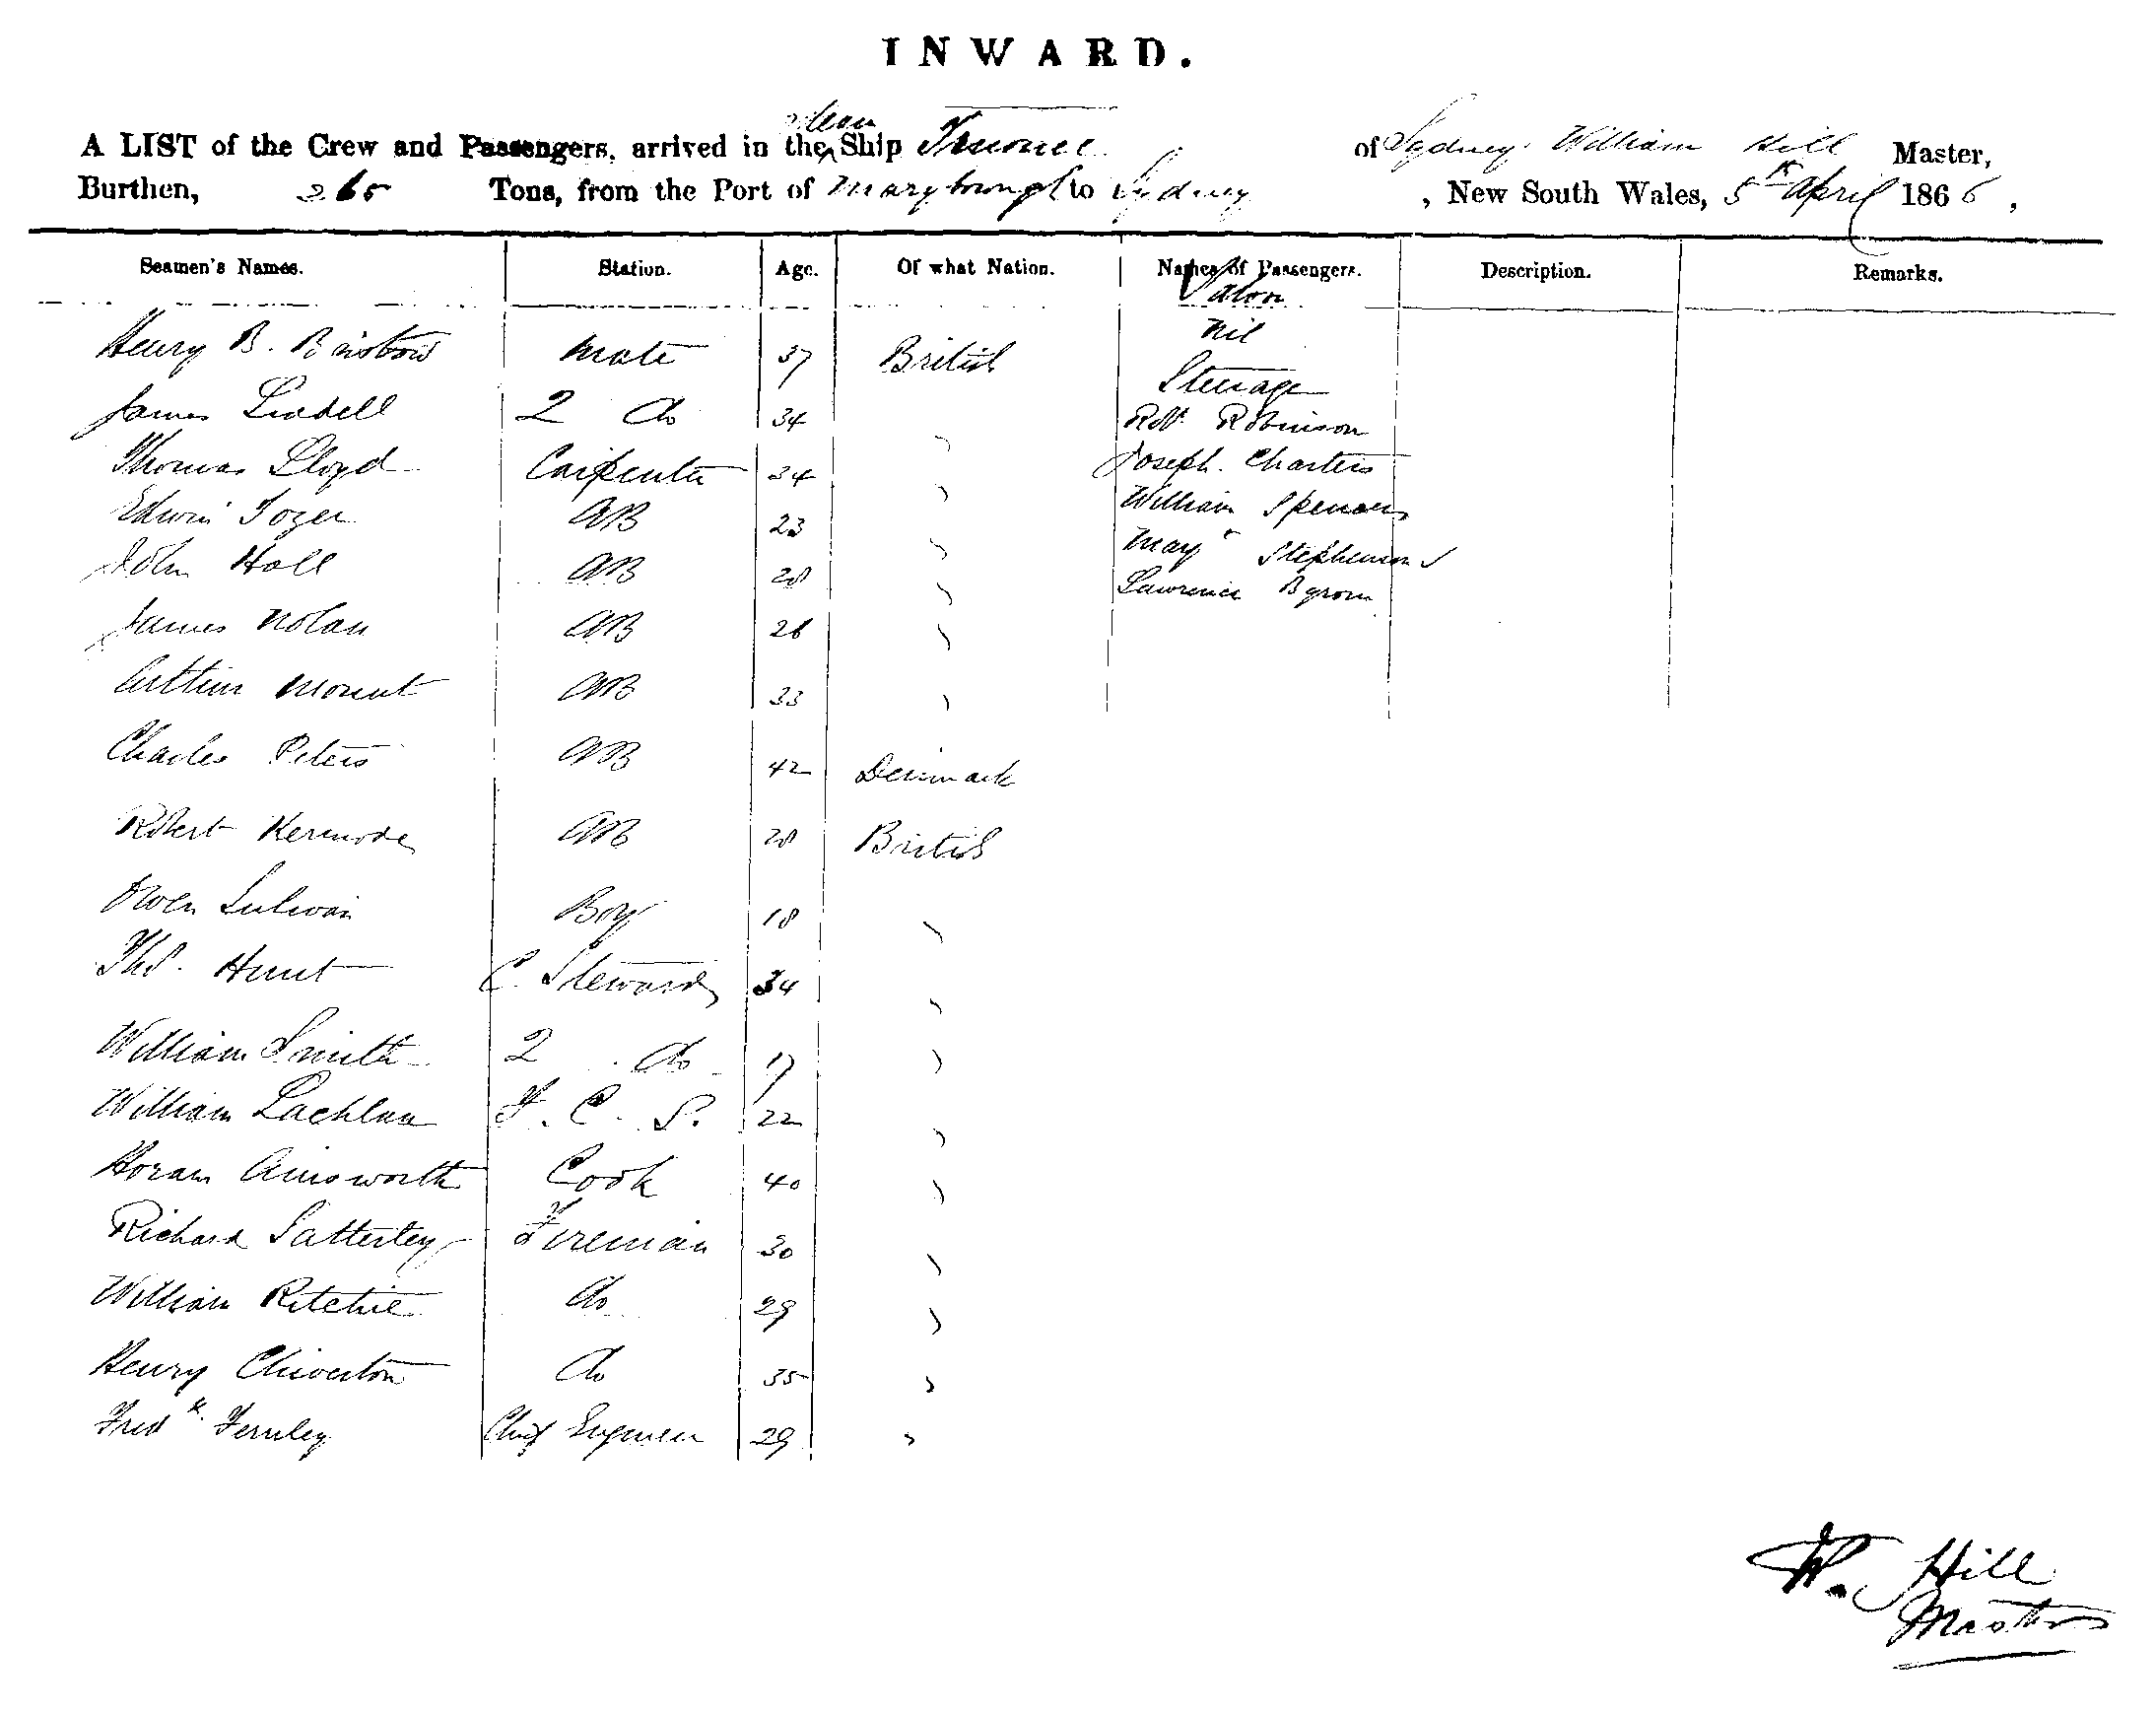 INWARD.
A LIST of the Crew and Passengers, arrived in the Steam Ship of Sydney William Hill Master,
Burthen, 265 Tons, from the Port of to Sydney, New South Wales, 5th April 1866,
Seamen's Names. Station. Age. Of what Nation. Names of Passengers. Description. Remarks.
Salon
Nil
Henry B. Mate 37 British
Steerage
James 2 do 34 Robt. Robinson
Thomas Lloyd Carpenter 34 " Joseph. Charters
Edwin Tozer AB 23 " William
John Hall AB 28 " Stephenson
Lawrence Byrom
James Nolan AB 26 "
Arthur Mount AB 33 "
Charles Peters AB 42 Denmark
Robert Kermode AB 28 British
Owen Sulivan Boy 18 "
Thos. Hunt C. Steward 34 "
William Smith 2 do 17 "
William Lachlan F. C. S. 22 "
Horam Ainsworth Cook 40 "
Richard Satterley Fireman 30 "
William Ritchie do 29 "
Henry Chiverton do 35 "
Fredk. Fernley Chief Engineer 29 "
W. Hill
Master